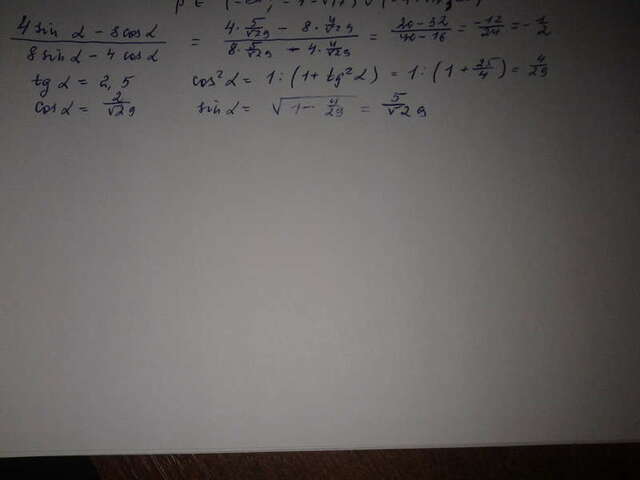 4 sin α - 8 cos α / 8 sin α - 4 cos α = 4 · 5/√29 - 8 · 4/√29 / 8 · 5/√29 + 4 · 4/√29 = 20 - 32 / 40 - 16 = -12/24 = -1/2
tg α = 2,5 cos² α = 1 : (1 + tg² α) = 1 : (1 + 25/4) = 4/29
cos α = 2/√29 sin α = √1 - 4/29 = 5/√29